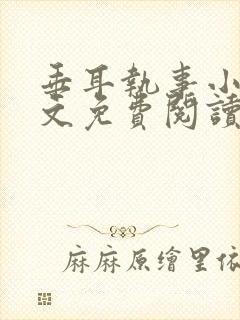 垂耳執事小
文免費閱讀
麻麻原繪里依